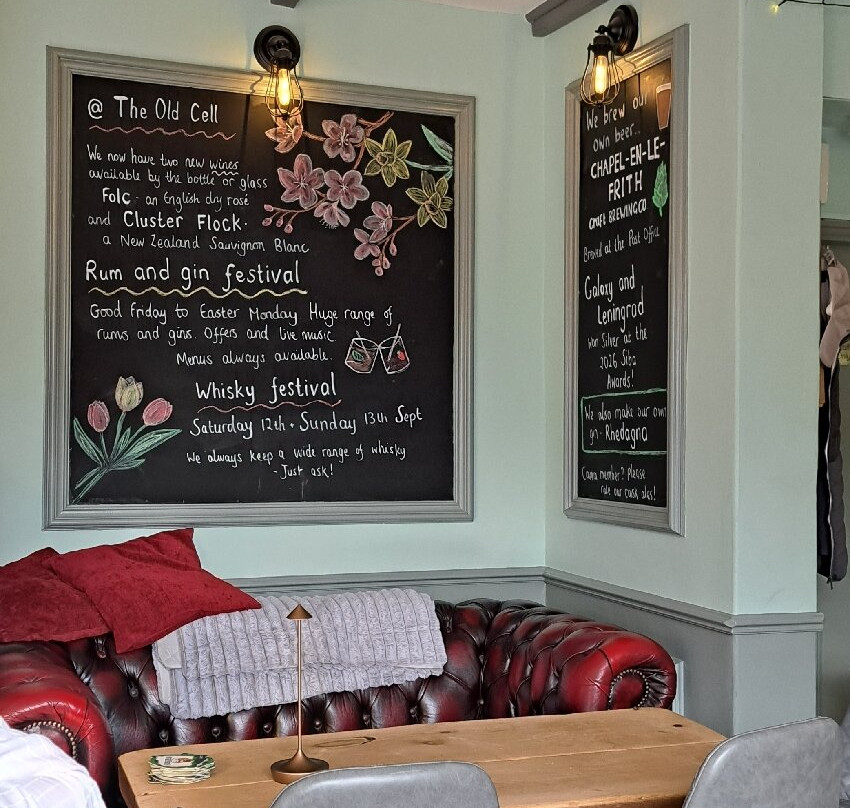 @ The Old Cell
We now have two new wines
available by the bottle or glass
Folc - an English dry rosé
and Cluster Flock -
a New Zealand Sauvignon Blanc
Rum and gin festival
Good Friday to Easter Monday Huge range of
rums and gins. Offers and live music
Menus always available.
Whisky festival
Saturday 12th + Sunday 13th Sept
We always keep a wide range of whisky
- Just ask!
We brew our
own beer..
CHAPEL-EN-LE-
FRITH
CRAFT BREWING CO
Brewed at the Post Office
Galaxy and
Leningrad
won Silver at the
2026 Siba
Awards!
We also make our own
gin - Rhedagno
Camra member? Please
rate our cask ales!